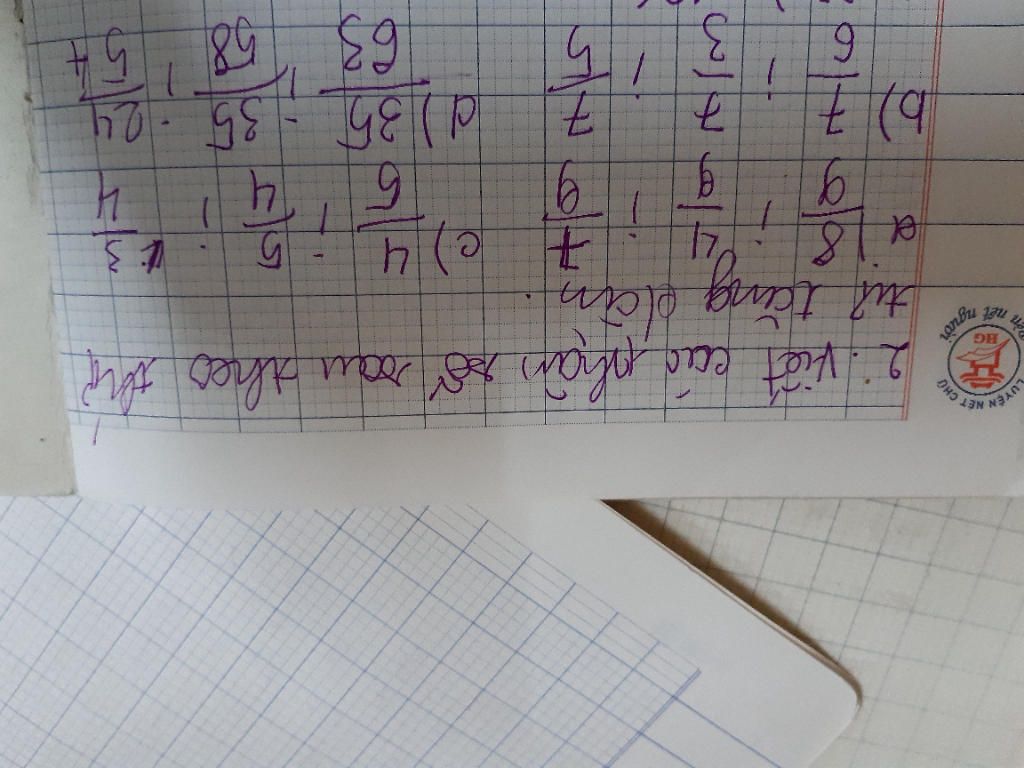 2. Viết các phân số sau theo thứ
tự tăng dần.
a) 8/9 ; 4/9 ; 7/9 c) 4/5 ; 5/4 ; 3/4
b) 7/6 ; 7/3 ; 7/5 d) 35/63 ; 35/58 ; 24/54
LUYỆN NÉT CHỮ
BG
rèn nết người